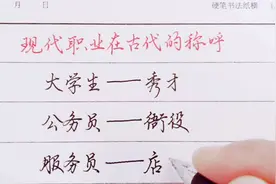 月 日 硬笔书法纸模
现代职业在古代的称呼
大学生——秀才
公务员——衙役
服务员——店